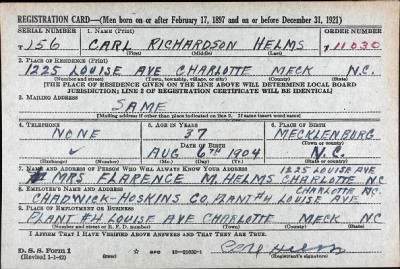 REGISTRATION CARD—(Men born on or after February 17, 1897 and on or before December 31, 1921)
SERIAL NUMBER 1. NAME (Print) ORDER NUMBER
T 156 CARL RICHARDSON HELMS T 11030
(First) (Middle) (Last)
2. PLACE OF RESIDENCE (Print)
1225 LOUISE AVE CHARLOTTE MECK N.C.
(Number and street) (Town, township, village, or city) (County) (State)
[THE PLACE OF RESIDENCE GIVEN ON THE LINE ABOVE WILL DETERMINE LOCAL BOARD
JURISDICTION; LINE 2 OF REGISTRATION CERTIFICATE WILL BE IDENTICAL]
3. MAILING ADDRESS
SAME
[Mailing address if other than place indicated on line 2. If same insert word same]
4. TELEPHONE 5. AGE IN YEARS 6. PLACE OF BIRTH
NONE 37 MECKLENBURG
DATE OF BIRTH (Town or county)
AUG 6TH 1904 N.C.
(Exchange) (Number) (Mo.) (Day) (Yr.) (State or country)
7. NAME AND ADDRESS OF PERSON WHO WILL ALWAYS KNOW YOUR ADDRESS 1225 LOUISE AVE
MRS FLARENCE M. HELMS CHARLOTTE N.C.
8. EMPLOYER'S NAME AND ADDRESS CHARLOTTE NC.
CHADWICK-HOSKINS CO. PLANT #4 LOUISE AVE
9. PLACE OF EMPLOYMENT OR BUSINESS
PLANT #4 LOUISE AVE CHARLOTTE MECK NC
(Number and street or R. F. D. number) (Town) (County) (State)
I AFFIRM THAT I HAVE VERIFIED ABOVE ANSWERS AND THAT THEY ARE TRUE.
D. S. S. Form 1
(Revised 1-1-42) (over) 16-21630-1 (Registrant's signature)